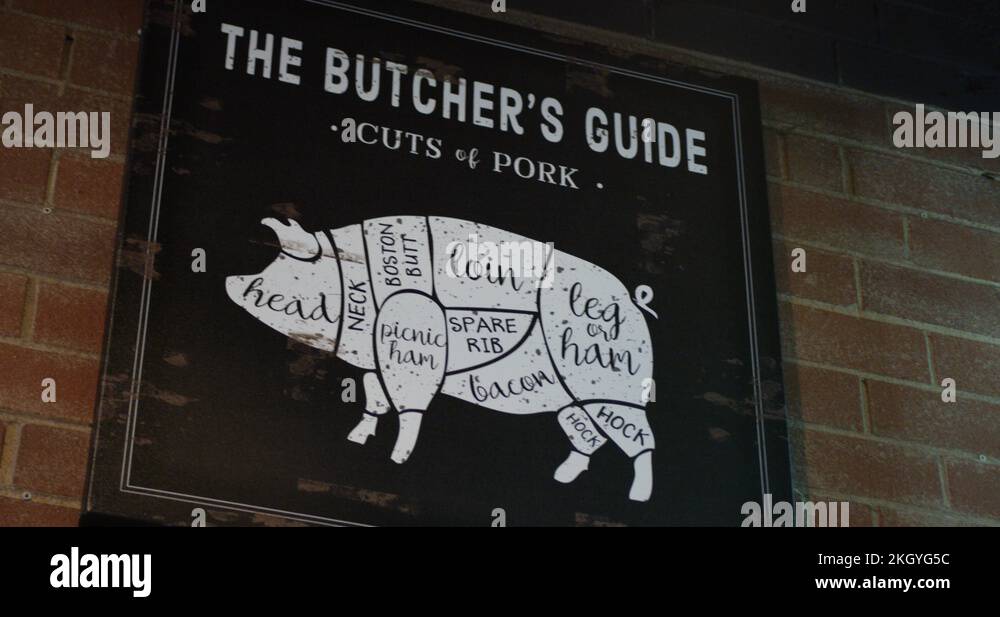 THE BUTCHER'S GUIDE
• CUTS of PORK •
head
NECK
BOSTON
BUTT
loin
leg
or
ham
picnic
ham
SPARE
RIB
bacon
HOCK
HOCK
alamy
alamy
Image ID: 2KGYG5C
www.alamy.com